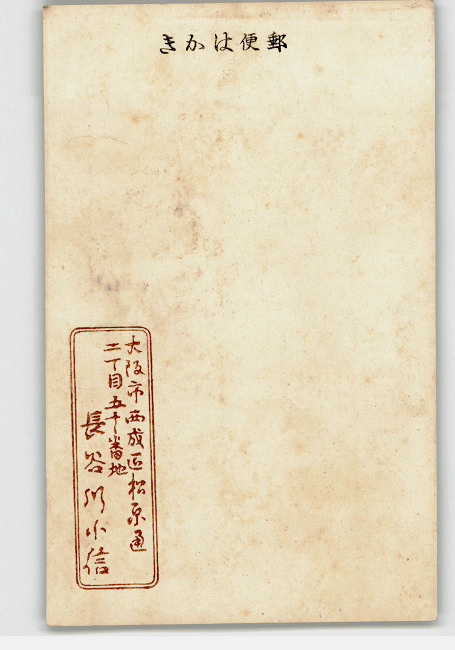 郵便はかき
大阪市西成区松原通
二丁目五十番地
長谷川小信